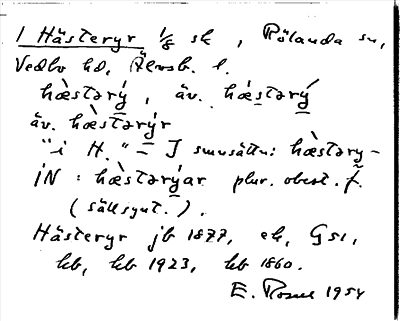 1 Hästeryr 1/8 sk, Rölanda sn,
Vedbo hd, Älvsb. l.
hæ̀stərý, äv. hæ̀stərý
äv. hæ̀stərýr
"i H." = I smnsättn: hæ̀stəry-
IN : hæ̀stərýar plur. obest. f.
(sällsynt.).
Hästeryr jb 1877, ek, GS1,
kb, hb 1923, hb 1860.
E. 1954